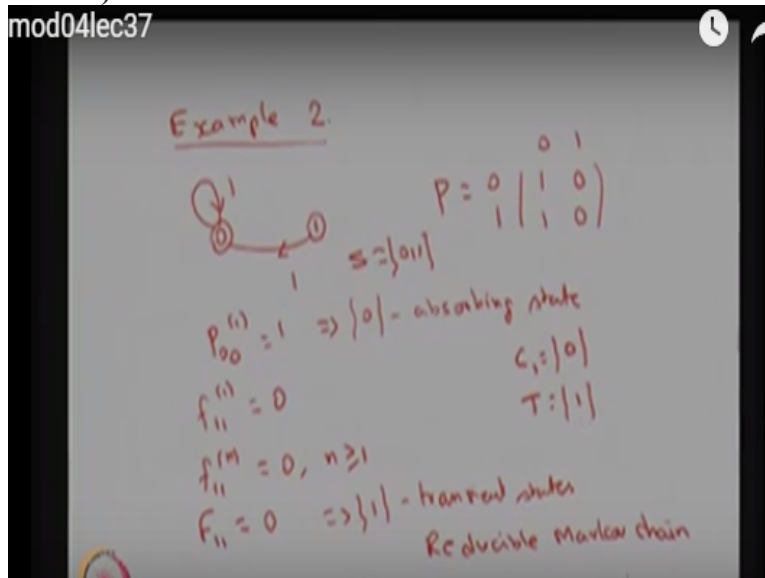 mod04lec37
Example 2.
0 1
1
P = 0 | 1 0 |
1 | 1 0 |
0 1
S = {0,1}
1
P00^(1) = 1 => {0} - absorbing state
C1 : {0}
f11^(1) = 0
T : {1}
f11^(n) = 0, n ≥ 1
F11 = 0 => {1} - transient states
Reducible Markov chain